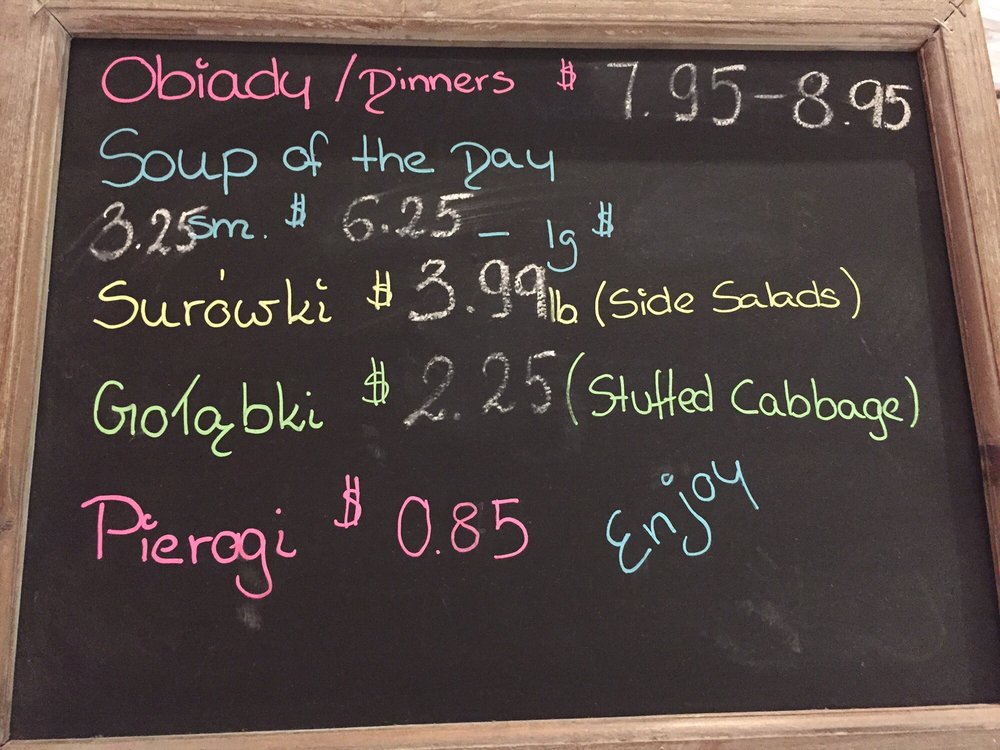 Obiady / Dinners $ 7.95-8.95
Soup of the Day
3.25 sm. $ 6.25 - lg $
Surówki $ 3.99 lb. (Side Salads)
Gołąbki $ 2.25 (Stuffed Cabbage)
Pierogi $ 0.85 Enjoy